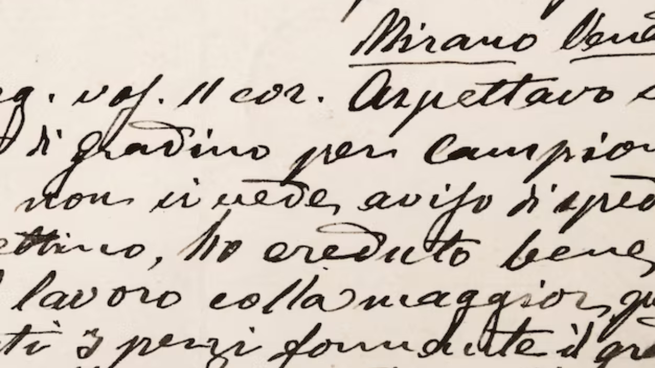 Mirano Vene
eg. vof. 11 cor. Aspettavo s
di gradino per campion
non si vede, aviso di spred
ettino, ho creduto bene,
l lavoro colla maggior, pr
ti 3 pezzi formante il gra